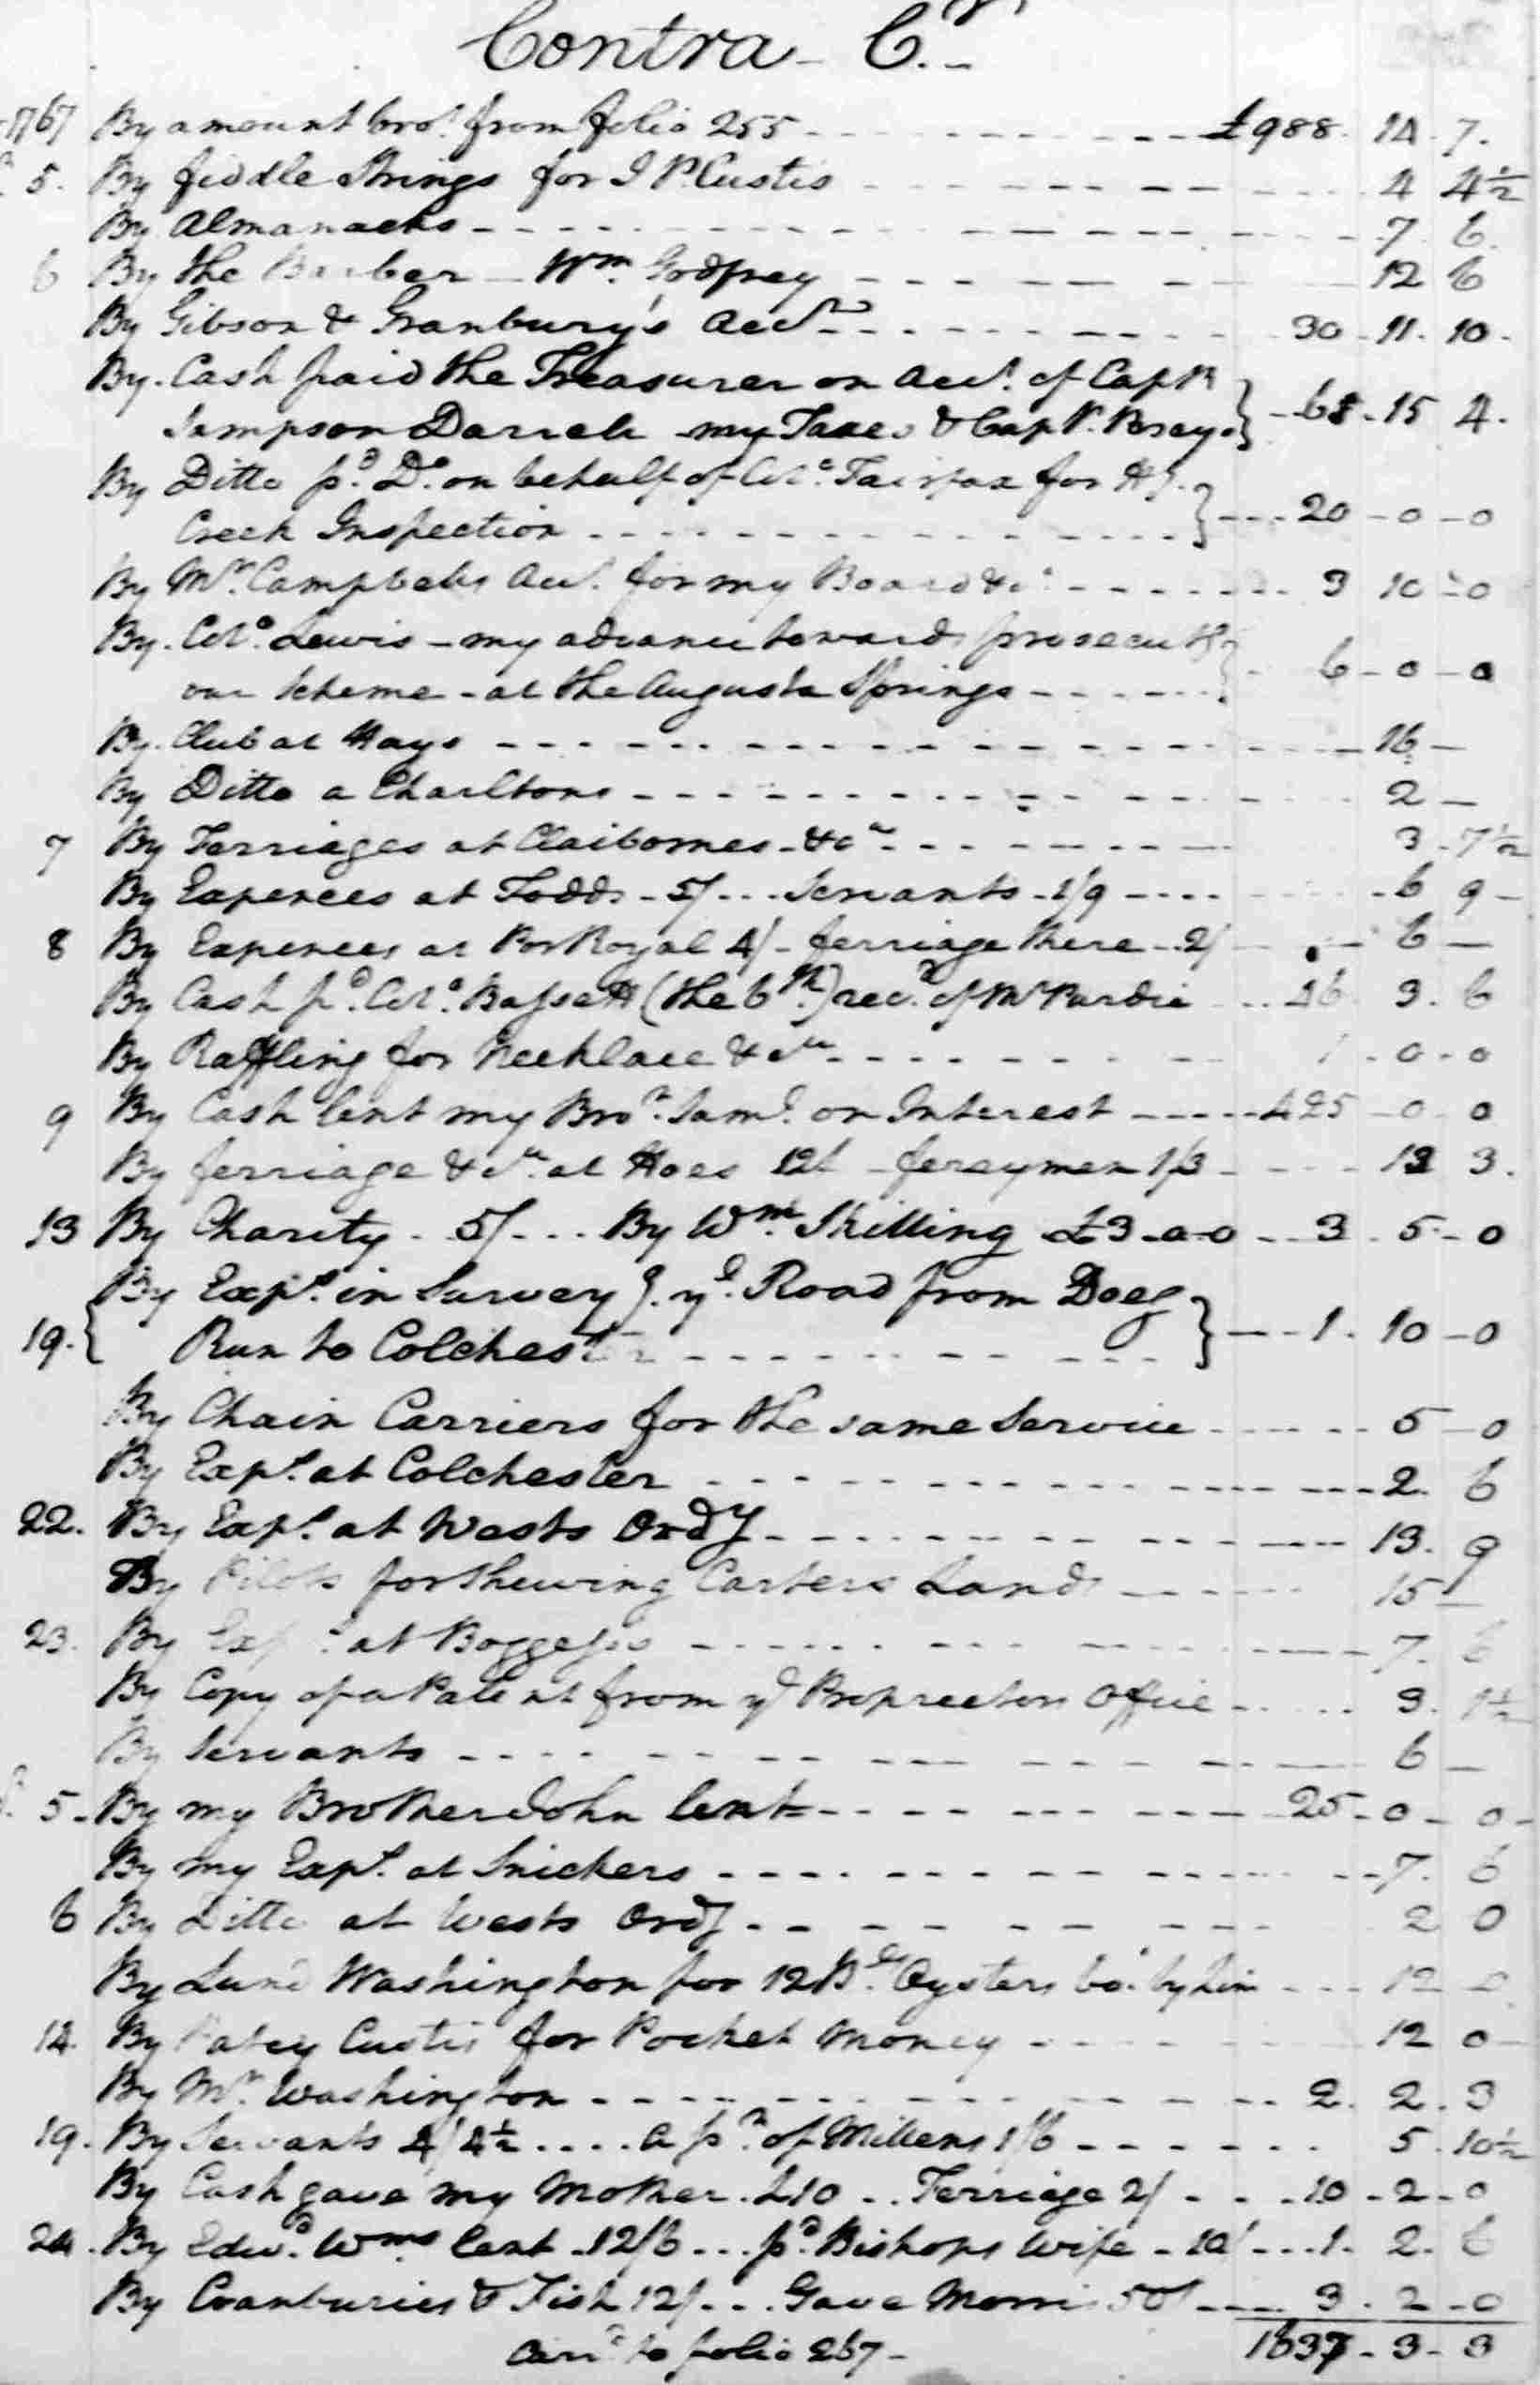 Contra Cr.
1767 By amount bro.t from folio 255 £988 14 7.
5. By fiddle Strings for J P. Custis 4 4½
By Almanacks 7 6.
6 By the Barber Wm. Godfrey 12 6
By Gibson & Granbury's Acct. 30 11. 10.
By Cash paid the Treasurer on Acct. of Captn
Sampson Darrell my Taxes & Capt. Posey 68 15 4.
By Ditto pd. Do. on behalf of Colo. Fairfax for Hg.
Creek Inspection 20 0 0
By Mrs. Campbells Acct. for my Board &ca. 3 10 0
By Colo. Lewis - my advance towards prosecutg
our Scheme - at the Augusta Springs 6 0 0
By Club at Hays 16
By Ditto a Charltons 2
7 By Ferriages at Claibornes - &ca. 3 7½
By Expences at Todds - 5/ Servants 1/9 6 9
8 By Expences at Port Royal 4/ - ferriage there 2/ 6
By Cash pd. Colo. Bassett (the 6th.) recd. of Mr Purdie 16 3. 6
By Raffling for Necklace &ca. 1 0 0
9 By Cash lent my Bror. Saml. on Interest 425 0 0
By ferriage &ca. at Hoes 12/ ferrymen 1/3 13 3.
13 By Charity - 5/ By Wm. Skilling £3-0-0 3 5 0
By Exps. in Surveyg. ye. Road from Doeg
19. Run to Colchester 1. 10 0
By Chain Carriers for the same Service 5 0
By Exps. at Colchester 2. 6
22. By Exps. at Wests Ordy 13. 9
By Pilots for Shewing Carters Land 15
23. By Exps. at Boggess's 7. 6
By Copy of a Patent from ye Proprietors Office 3. 1½
By Servants 6
5. By my Brother John lent 25 0 0
By my Exps. at Snickers 7. 6
6 By Ditto at Wests Ordy 2 0
By Lund Washington for 12 Bls. Oysters bot. by him 12
14. By Patcy Custis for Pocket Money 12 0
By Mrs. Washington 2. 2. 3
19. By Servants 4/4½ a pr. of Mittens 1/6 5. 10½
By Cash gave my Mother £10 Ferriage 2/ 10 2 0
24. By Edwd. Wms. lent 12/6 pd. Bishops Wife 10/ 1. 2. 6
By Cranburies & Fish 12/ Gave Morris 50/ 3. 2 0
Carrd. to folio 267 1637 3 3